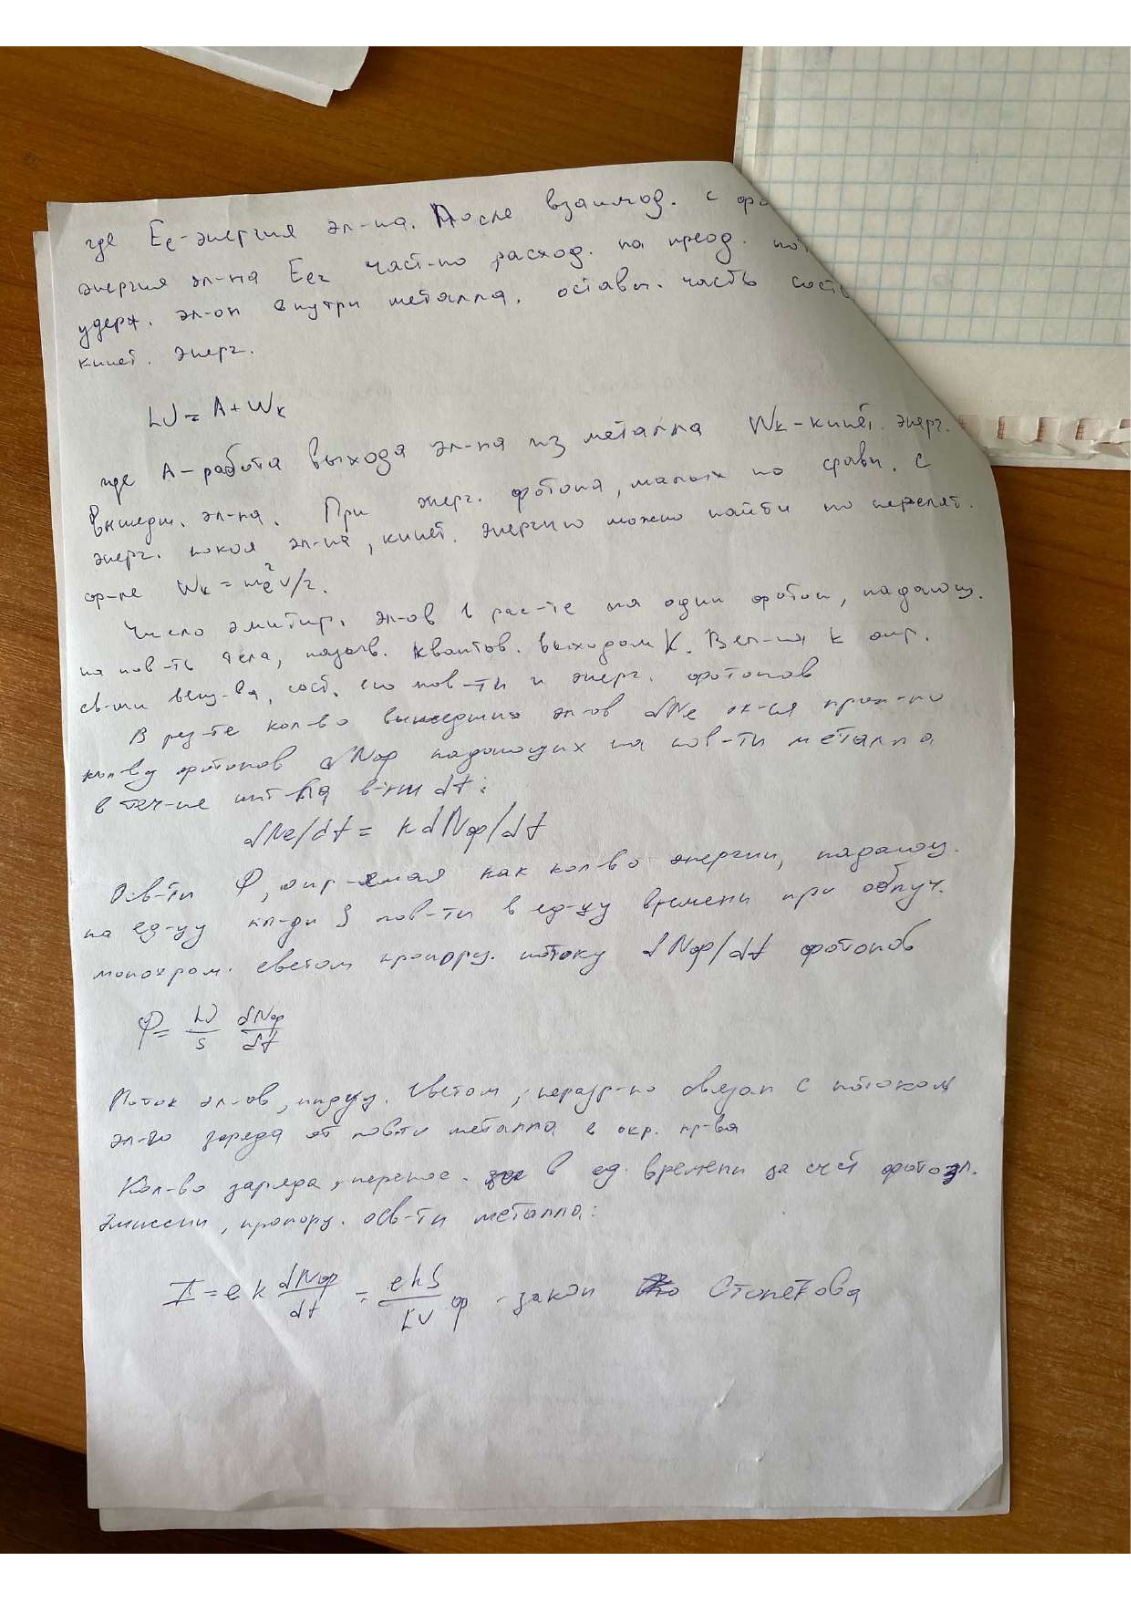 где Ee-энергия эл-на. После взаимод. с фо
энергия эл-на Ee2 част-но расход. на преод. по
удерж. эл-он внутри металла. оставш. часть сост
кинет. энерг.
hν = A + Wk
где A - работа выхода эл-на из металла Wk - кинет. энерг.
вышедш. эл-на. При энерг. фотона, малых по сравн. с
энерг. покоя эл-на, кинет. энергию можно найти по нерелят.
ф-ле Wk = me²v/2.
Число эмитир. эл-ов в рас-те на один фотон, падающ.
на пов-ть тела, назыв. квантов. выходом K. Вел-на k опр.
св-ми вещ-ва, сост. его пов-ти и энерг. фотонов
В рез-те кол-во вышедших эл-ов dNe ок-ся проп-но
кол-ву фотонов dNф падающих на пов-ти металла
в теч-ие инт-ла в-ни dt:
dNe/dt = k dNф/dt
Осв-ти Φ, опр-емая как кол-во энергии, падающ.
на ед-цу пл-ди S пов-ти в ед-цу времени при облуч.
монохром. светом пропорц. потоку dNф/dt фотонов
Φ = hν/S dNф/dt
Поток эл-ов, индуц. светом, неразр-но связан с потоком
эл-го заряда от пов-ти металла в окр. пр-ва
Кол-во заряда, перенос. в ед. времени за счёт фотоэл.
эмиссии, пропорц. осв-ти металла:
I = e k dNф/dt = ekS/hν Φ - закон Столетова